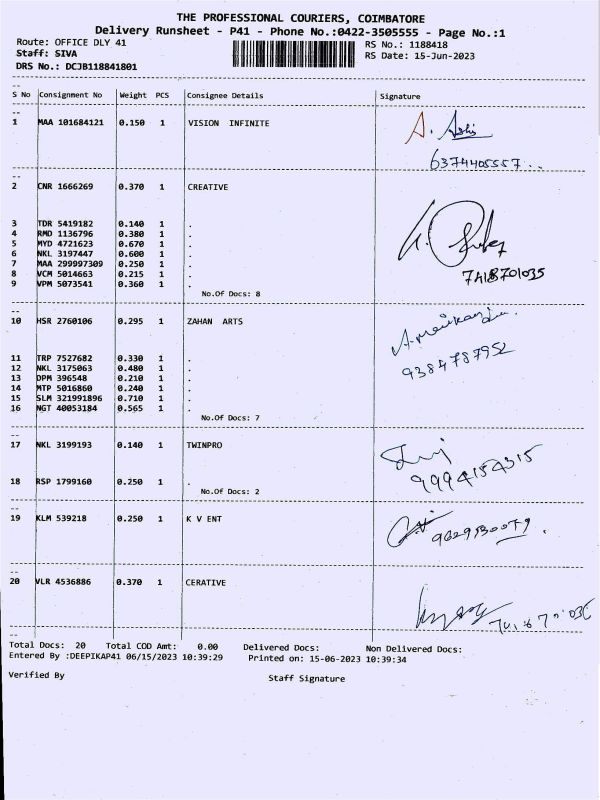 THE PROFESSIONAL COURIERS, COIMBATORE
Delivery Runsheet - P41 - Phone No.:0422-3505555 - Page No.:1
Route: OFFICE DLY 41 RS No.: 1188418
Staff: SIVA RS Date: 15-Jun-2023
DRS No.: DCJB118841801
S No Consignment No Weight PCS Consignee Details Signature
1 MAA 101684121 0.150 1 VISION INFINITE
6374405557
2 CNR 1666269 0.370 1 CREATIVE
3 TDR 5419182 0.140 1 .
4 RMD 1136796 0.380 1 .
5 MYD 4721623 0.670 1 .
6 NKL 3197447 0.600 1 .
7 MAA 299997309 0.250 1 .
8 VCM 5014663 0.215 1 .
9 VPM 5073541 0.360 1 .
7418701035
No.Of Docs: 8
10 HSR 2760106 0.295 1 ZAHAN ARTS
9384787952
11 TRP 7527682 0.330 1 .
12 NKL 3175063 0.480 1 .
13 DPM 396548 0.210 1 .
14 MTP 5016860 0.240 1 .
15 SLM 321991896 0.710 1 .
16 NGT 40053184 0.565 1 .
No.Of Docs: 7
17 NKL 3199193 0.140 1 TWINPRO
9994154315
18 RSP 1799160 0.250 1 .
No.Of Docs: 2
19 KLM 539218 0.250 1 K V ENT
9629530079
20 VLR 4536886 0.370 1 CERATIVE
Total Docs: 20 Total COD Amt: 0.00 Delivered Docs: Non Delivered Docs:
Entered By :DEEPIKAP41 06/15/2023 10:39:29 Printed on: 15-06-2023 10:39:34
Verified By Staff Signature